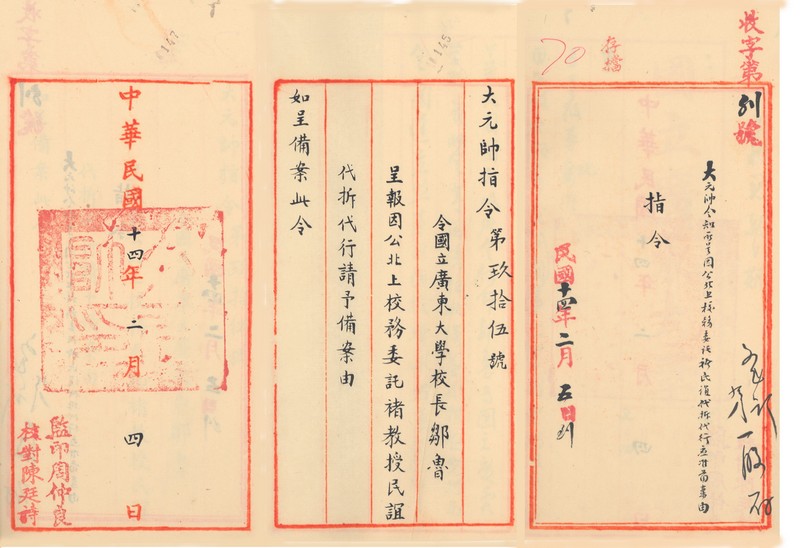 收字第
號
存檔
70
指令
大元帥令知所呈因公北上校務委託褚民誼代拆代行應准備案由
民國十四年二月五日到
1148
大元帥指令第玖拾伍號
令國立廣東大學校長鄒魯
呈報因公北上校務委託褚教授民誼
代拆代行請予備案由
如呈備案此令
1147
中華民國十四年二月四日
監印周仲良
校對陳廷詩